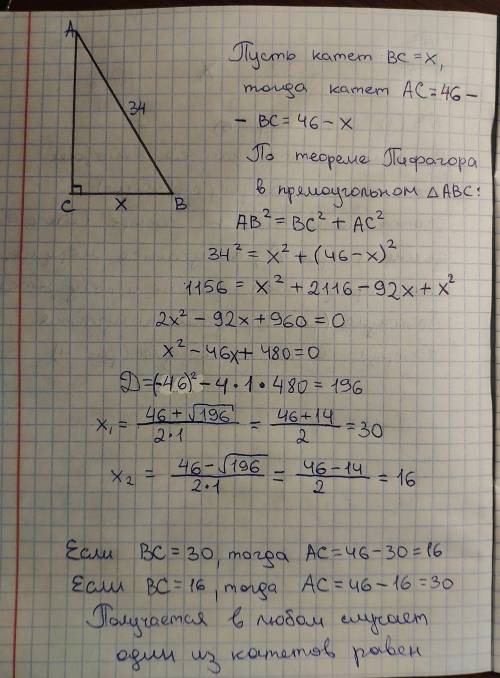 A
34
C
x
B
Пусть катет BC = x,
тогда катет AC = 46 –
– BC = 46 – x
По теореме Пифагора
в прямоугольном △ABC:
AB² = BC² + AC²
34² = x² + (46 – x)²
1156 = x² + 2116 – 92x + x²
2x² – 92x + 960 = 0
x² – 46x + 480 = 0
D = (-46)² – 4 · 1 · 480 = 196
x₁ = (46 + √196)/(2·1) = (46 + 14)/2 = 30
x₂ = (46 – √196)/(2·1) = (46 – 14)/2 = 16
Если BC = 30, тогда AC = 46 – 30 = 16
Если BC = 16, тогда AC = 46 – 16 = 30
Получается в любом случает
один из катетов равен